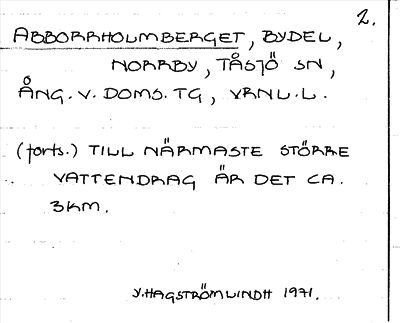 2.
ABBORRHOLMBERGET, BYDEL,
NORRBY, TÅSJÖ SN,
ÅNG. V. DOMS. TG, VRNL. L.
(forts.) TILL NÄRMASTE STÖRRE
VATTENDRAG ÄR DET CA.
3KM.
Y. HAGSTRÖM LINDH 1971.